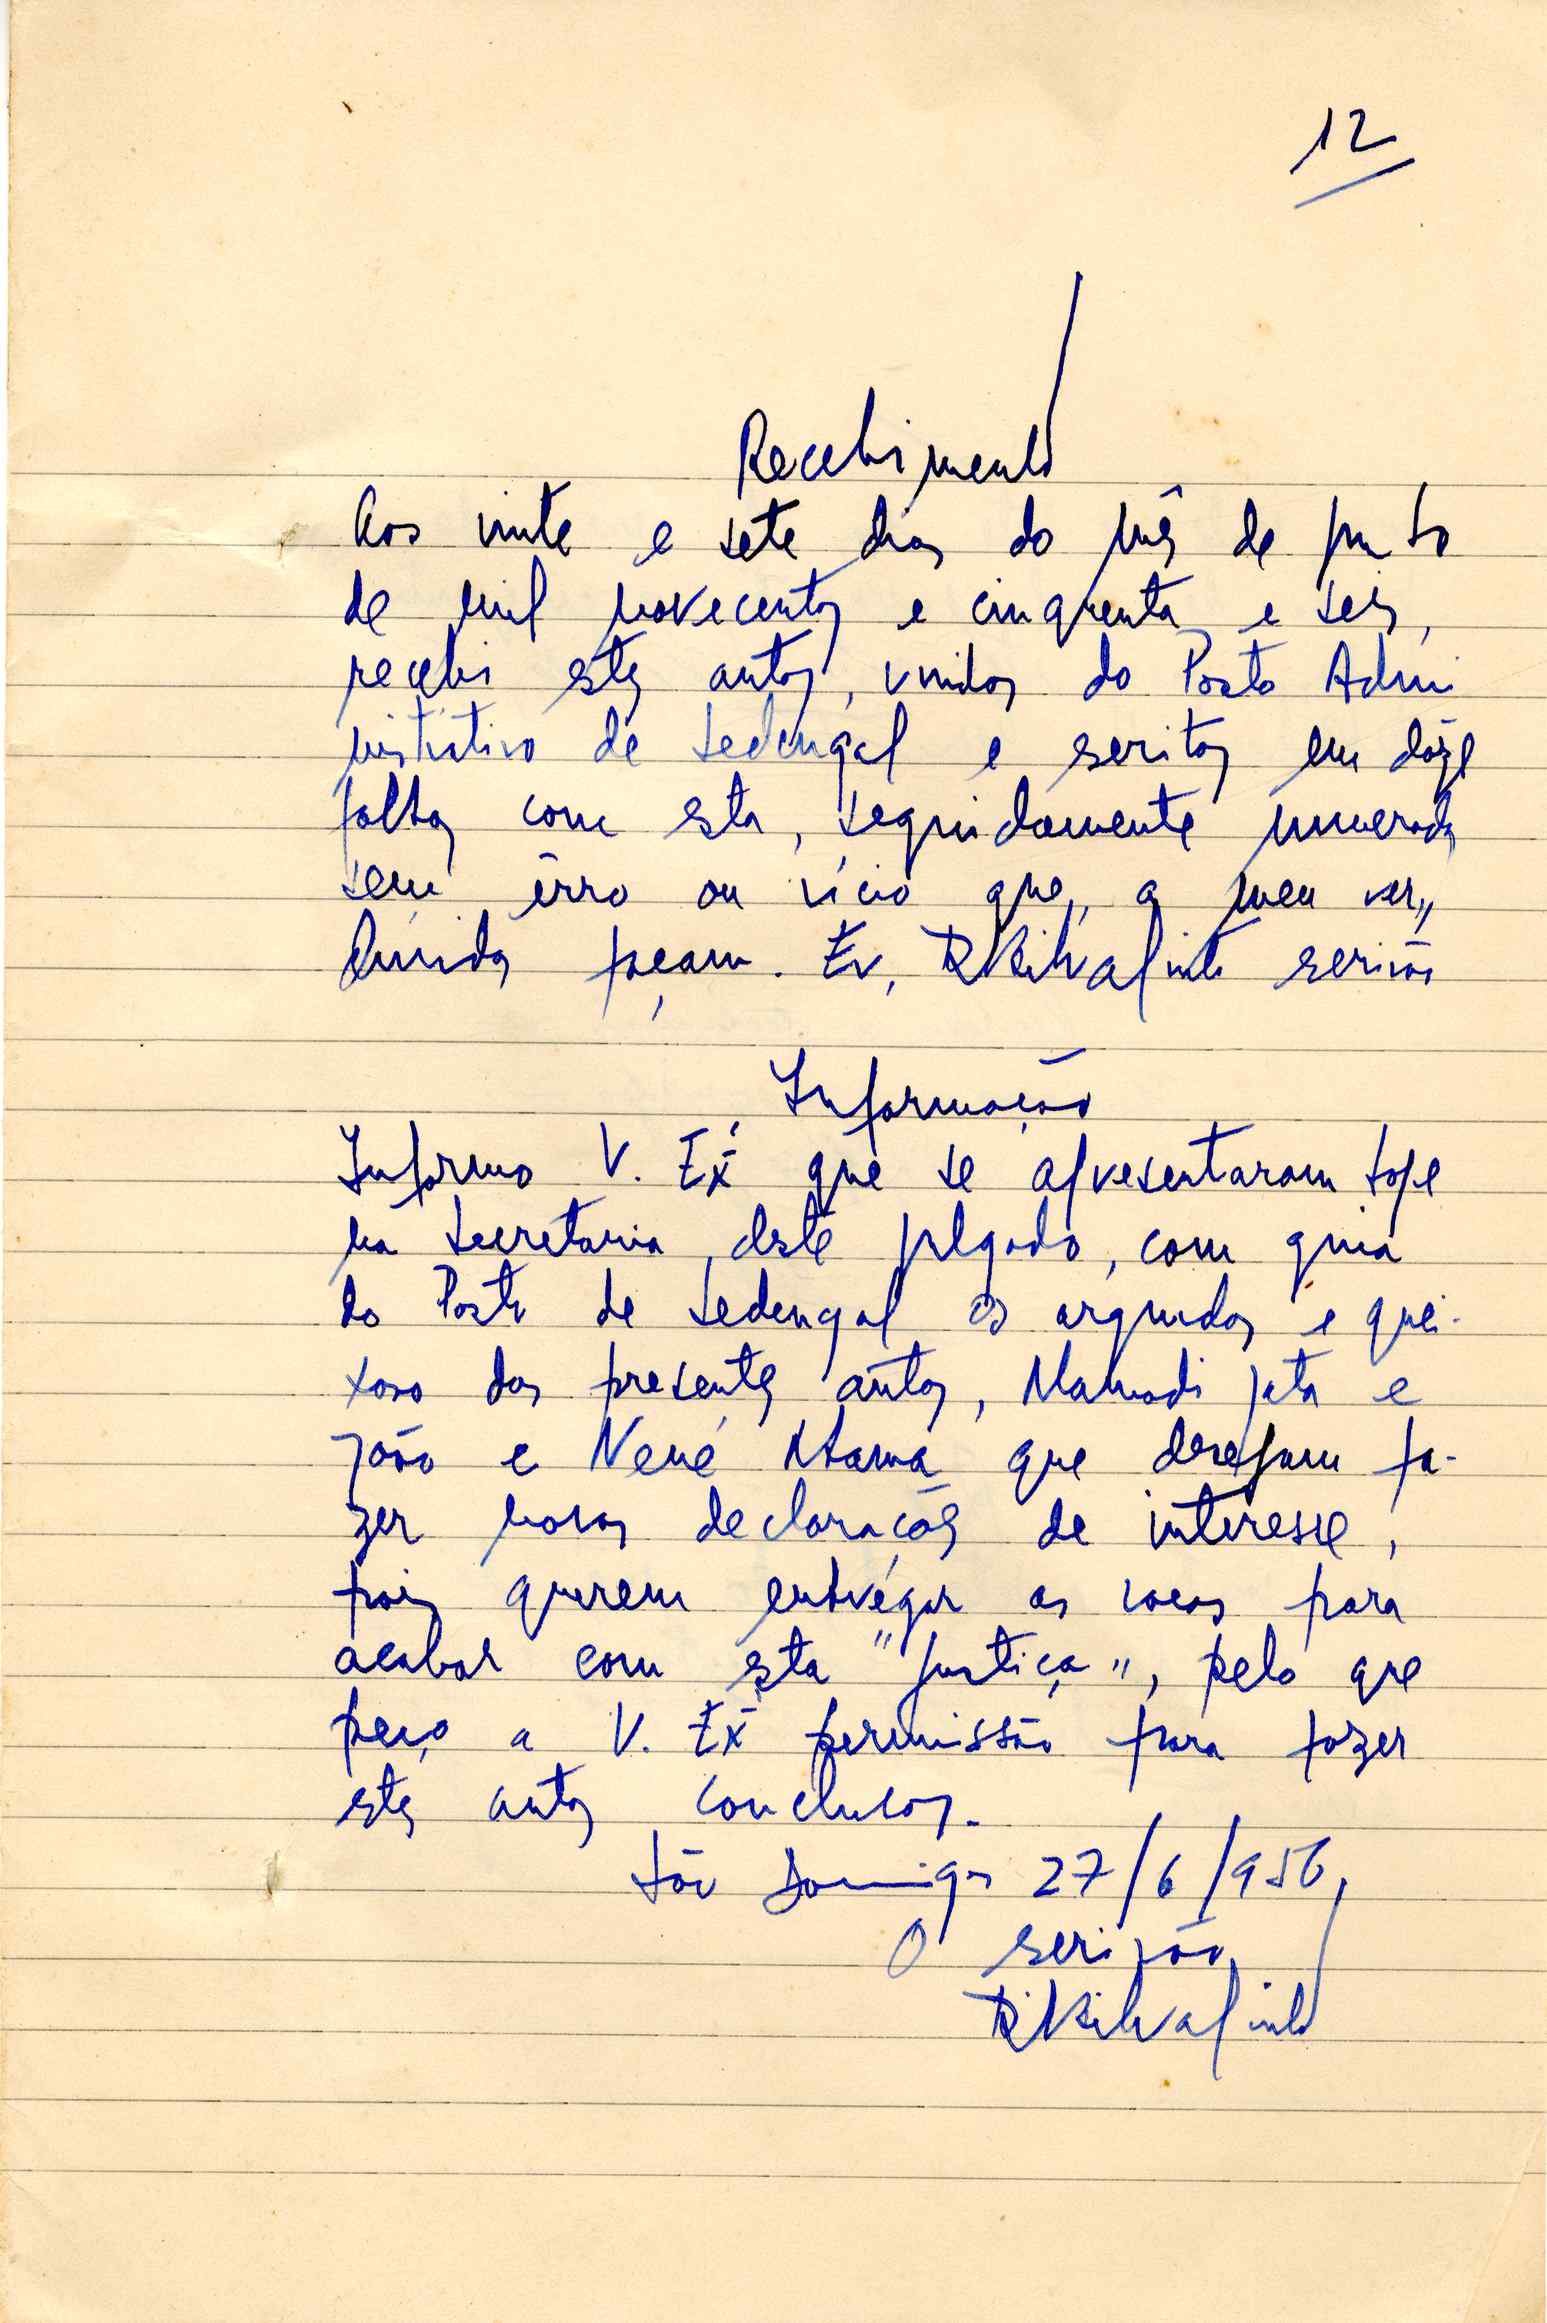 12
Recebimento
Aos vinte e sete dias do mês de junho
de mil novecentos e cinquenta e seis,
recebi estes autos, vindos do Posto Admi
nistrativo de Sedengal e escritos em dôze
folhas com esta, seguidamente numeradas
sem êrro ou vício que, a meu ver,,
duvidas façam. Eu, escrivão
Informação
Informo V. Exª que se apresentaram hoje
na Secretaria deste julgado, com guia
do Posto de Sedengal os arguidos e quei-
xoso dos presentes autos, Mamadi Jata e
João e Nené Mamá que desejam fa-
zer novas declarações de interesse,
pois querem entregar as vacas para
acabar com esta "justiça", pelo que
peço a V. Exª permissão para fazer
estes autos conclusos.
São Domingos 27/6/956,
O escrivão